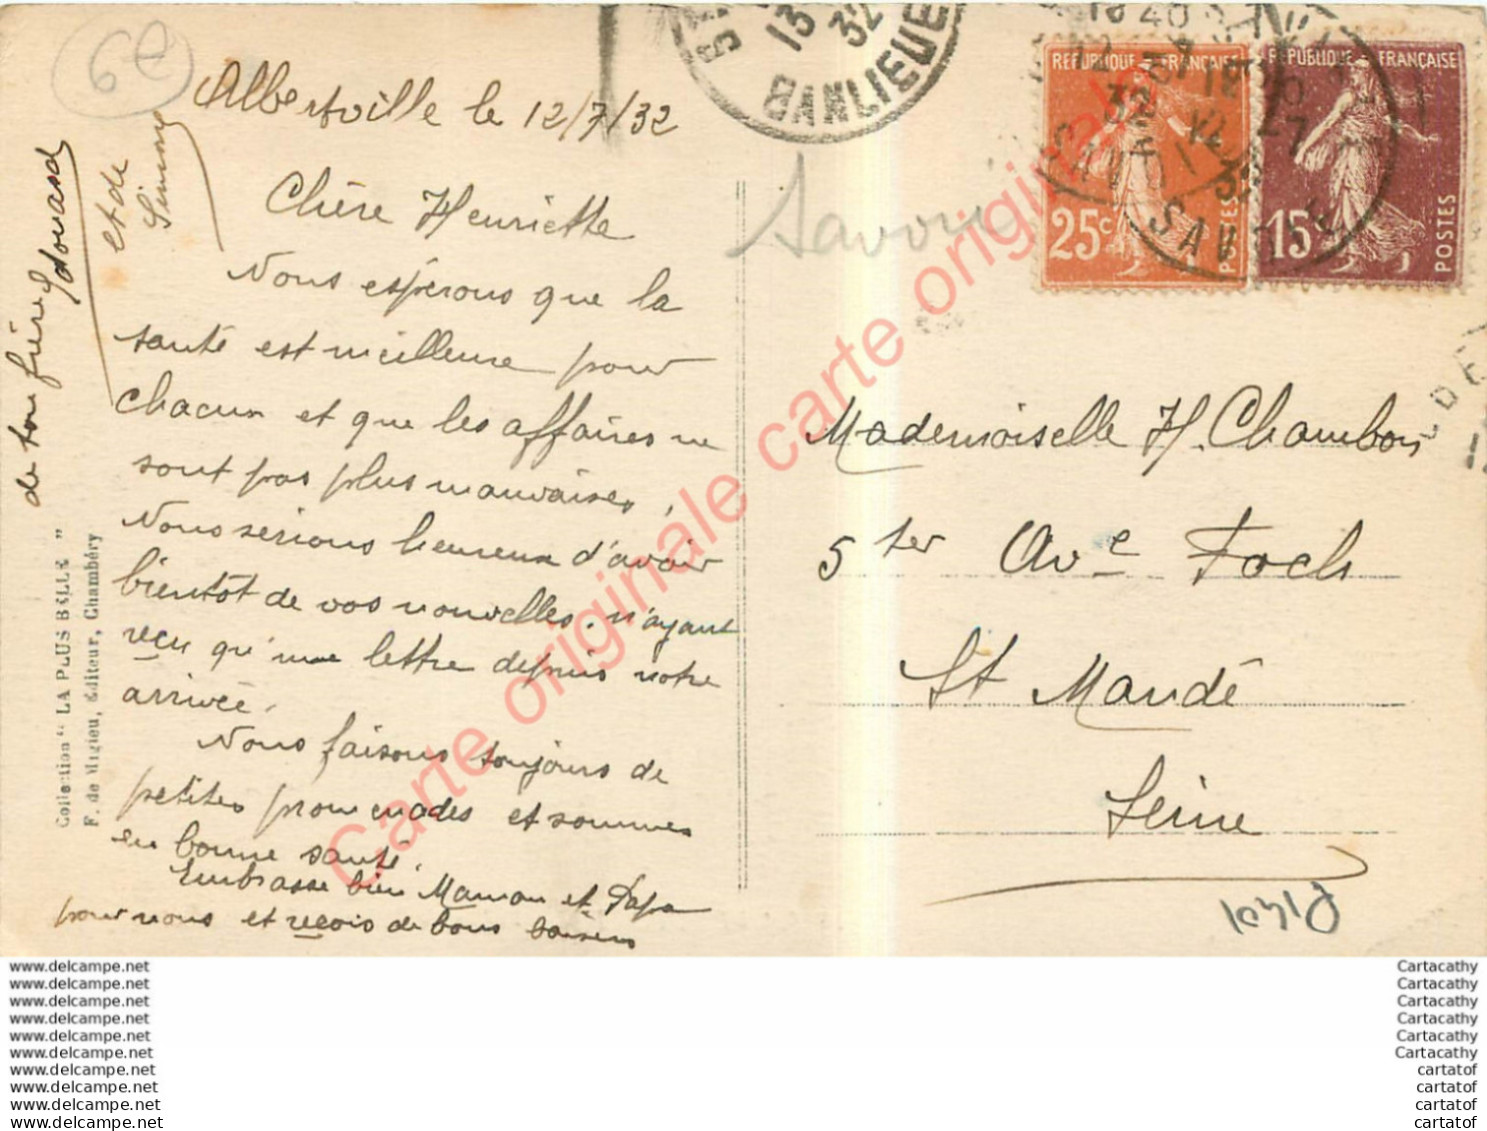 6e
Albertville le 12/7/32
Chère Henriette
Nous espérons que la
santé est meilleure pour
chacun et que les affaires ne
sont pas plus mauvaises,
Nous serions heureux d'avoir
bientôt de vos nouvelles. n'ayant
reçu qu'une lettre depuis notre
arrivée.
Nous faisons toujours de
petites promenades et sommes
en bonne santé.
Embrasse bien Maman et Papa
pour nous et reçois de bons baisers
de ton frère Edouard
et de
Simone
Collection " LA PLUS BELLE "
F. de Migieu, éditeur, Chambéry
13
32
BANLIEUE
Savoie
REPUBLIQUE FRANÇAISE
25c
POSTES
REPUBLIQUE FRANÇAISE
15c
POSTES
SAVOIE
Mademoiselle H. Chambon
5 ter Ave Foch
St Mandé
Seine
Carte originale carte originale carte originale
www.delcampe.net
www.delcampe.net
www.delcampe.net
www.delcampe.net
www.delcampe.net
www.delcampe.net
www.delcampe.net
www.delcampe.net
www.delcampe.net
www.delcampe.net
Cartacathy
Cartacathy
Cartacathy
Cartacathy
Cartacathy
Cartacathy
cartatof
cartatof
cartatof
cartatof